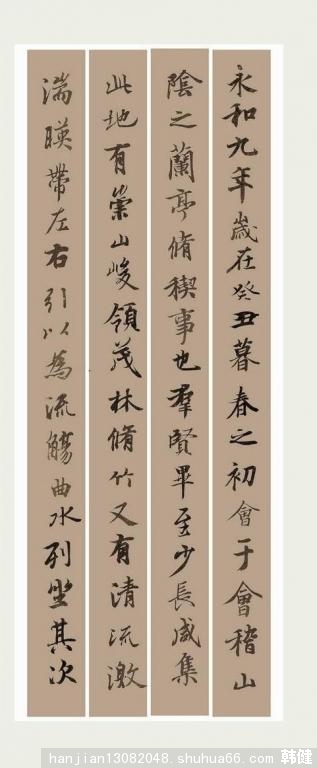 永和九年歲在癸丑暮春之初會于會稽山
陰之蘭亭脩稧事也羣賢畢至少長咸集
此地有崇山峻領茂林脩竹又有清流激
湍暎帶左右引以為流觴曲水列坐其次
hanjian13082048.shuhua66.com 韩健